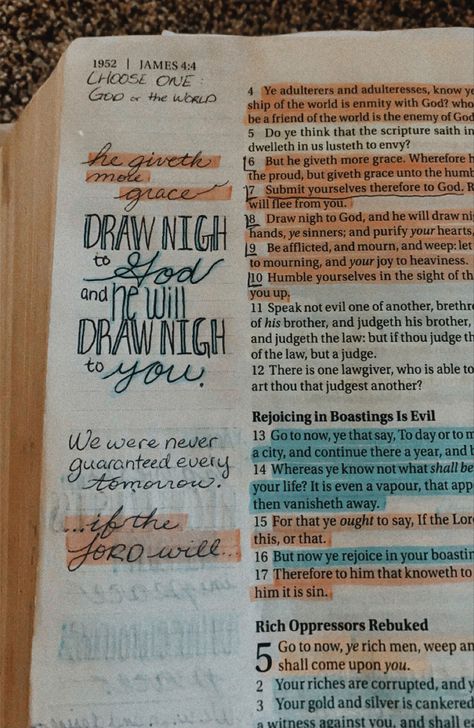 1952 | JAMES 4:4
CHOOSE ONE:
GOD or the WORLD
he giveth
more
grace
DRAW NIGH
to God
and he will
DRAW NIGH
to you.
We were never
guaranteed every
tomorrow.
...if the
LORD will...
4 Ye adulterers and adulteresses, know ye
ship of the world is enmity with God? who
be a friend of the world is the enemy of God
5 Do ye think that the scripture saith in
dwelleth in us lusteth to envy?
6 But he giveth more grace. Wherefore h
the proud, but giveth grace unto the humb
7 Submit yourselves therefore to God. R
will flee from you.
8 Draw nigh to God, and he will draw ni
hands, ye sinners; and purify your hearts,
9 Be afflicted, and mourn, and weep: let
to mourning, and your joy to heaviness.
10 Humble yourselves in the sight of th
you up.
11 Speak not evil one of another, brethre
of his brother, and judgeth his brother,
and judgeth the law: but if thou judge th
of the law, but a judge.
12 There is one lawgiver, who is able to
art thou that judgest another?
Rejoicing in Boastings Is Evil
13 Go to now, ye that say, To day or to m
a city, and continue there a year, and b
14 Whereas ye know not what shall be
your life? It is even a vapour, that app
then vanisheth away.
15 For that ye ought to say, If the Lor
this, or that.
16 But now ye rejoice in your boastin
17 Therefore to him that knoweth to
him it is sin.
Rich Oppressors Rebuked
5 Go to now, ye rich men, weep an
shall come upon you.
2 Your riches are corrupted, and y
3 Your gold and silver is cankered
a witness against you, and shall e